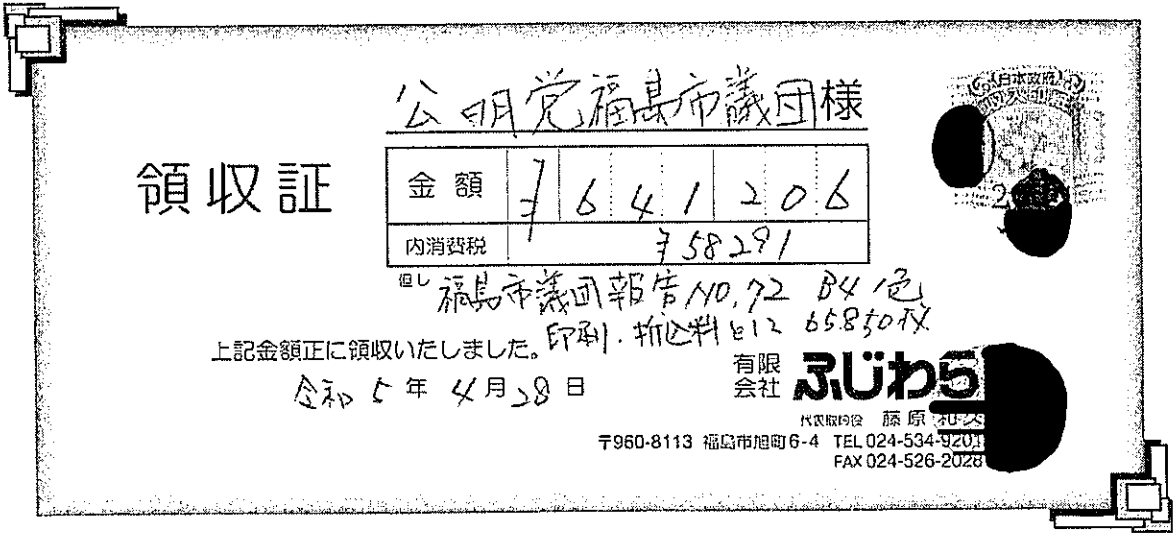 公明党福島市議団様
日本政府
領収証
金額 ¥641206
内消費税 ¥58291
但し 福島市議団報告NO.72 B4 1色
印刷・折込料として 65.850枚
上記金額正に領収いたしました。
令和5年4月28日
有限会社 ふじわら
代表取締役 藤原和久
〒960-8113 福島市旭町6-4 TEL 024-534-9201
FAX 024-526-2028